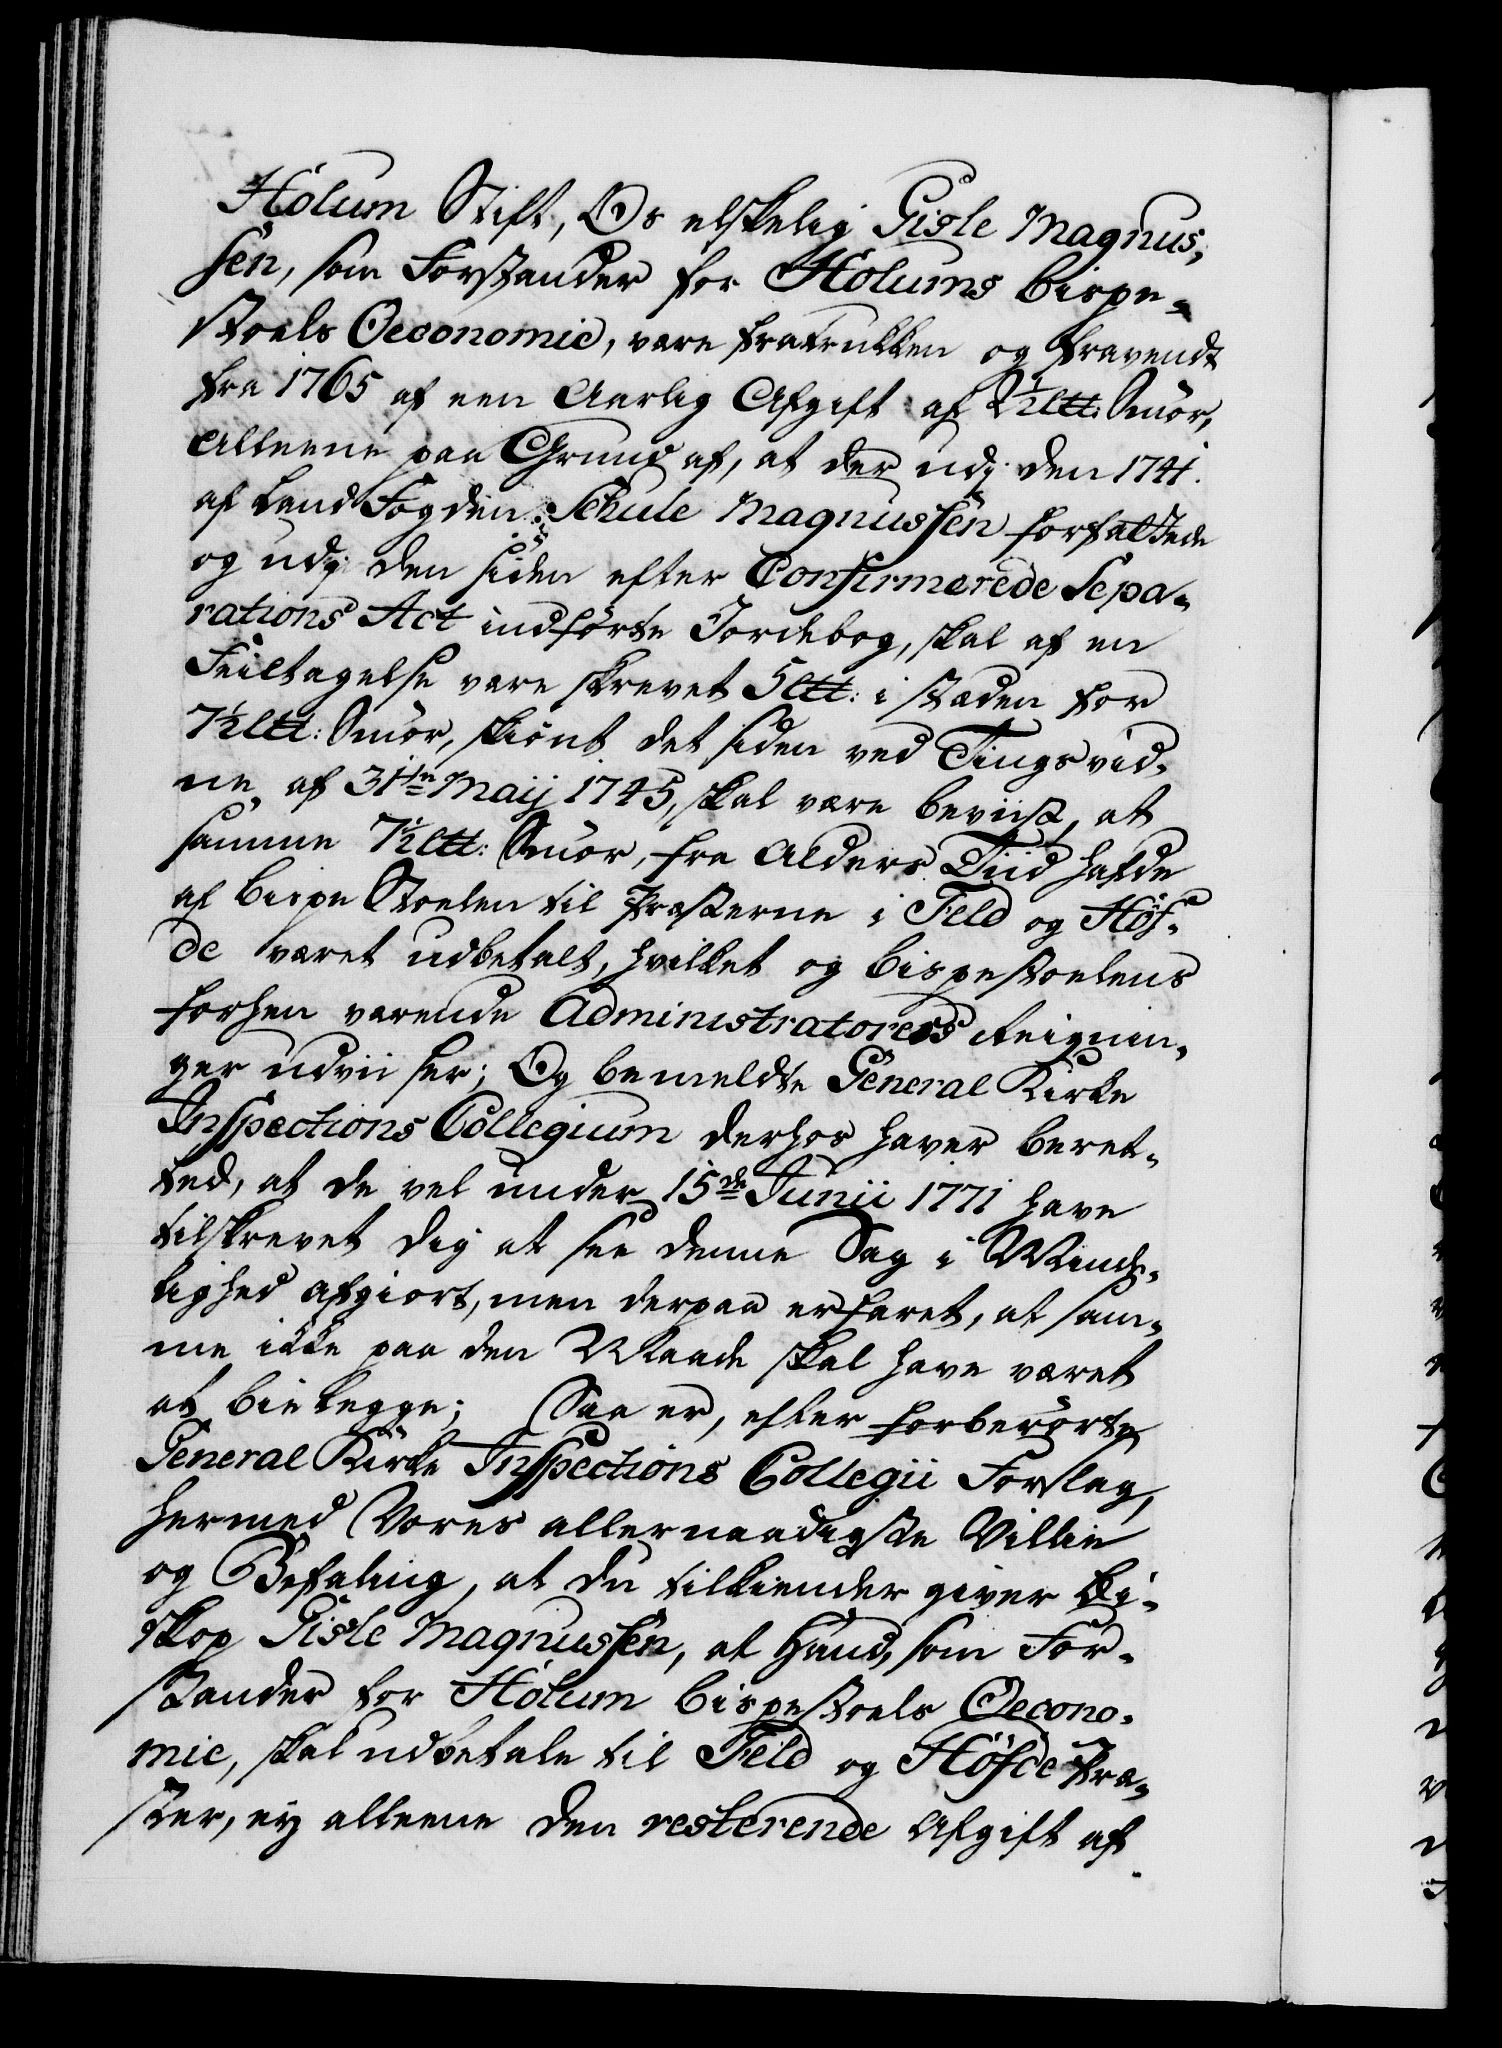 Hólum Stift, Os elskelig Gisle Magnus-
sen, som Forstander for Hólums Bispe-
stoels Oeconomie, være fratrukken og fravendt
fra 1765 af een Aarlig Afgift af 2½ ltt: Smör,
alleene paa Grund af, at der udj den 1741.
af Land Fogden Schule Magnussen forfattede
og udj den siden efter Confirmerede Sepa-
rations Act indförte Jordebog, skal af en
Feiltagelse være skrevet 5 ltt: i stæden for
7½ ltt: Smör, skiönt det siden ved Tings vid-
ne, af 31te Maij 1745, skal være beviist, at
samme 7½ ltt: Smör, fra Alders Tiid hafde
af Bispe Stoelen til Præsterne i Feld og Höf-
de været udbetalt, hvilket og Bispestoelens
forhen værende Administratorers Reignin-
ger udviiser; Og bemeldte General Kirke
Inspections Collegium derhos haver beret-
ted, at de vel under 15de Junii 1771 have
tilskrevet dig at see denne Sag i Mind-
lighed afgiort, men derpaa erfaret, at sam-
me ikke paa den Maade skal have været
at bielegge; Saa er, efter forberörte
General Kirke Inspections Collegii Forslag,
hermed Vores allernaadigste Villie
og Befaling, at du tilkiender giver Bi-
skop Gisle Magnussen, at Hand, som For-
stander for Hólum Bispestoels Oecono-
mie, skal udbetale til Feld og Höfde Præ-
ster, ey alleene den resterende Afgift af